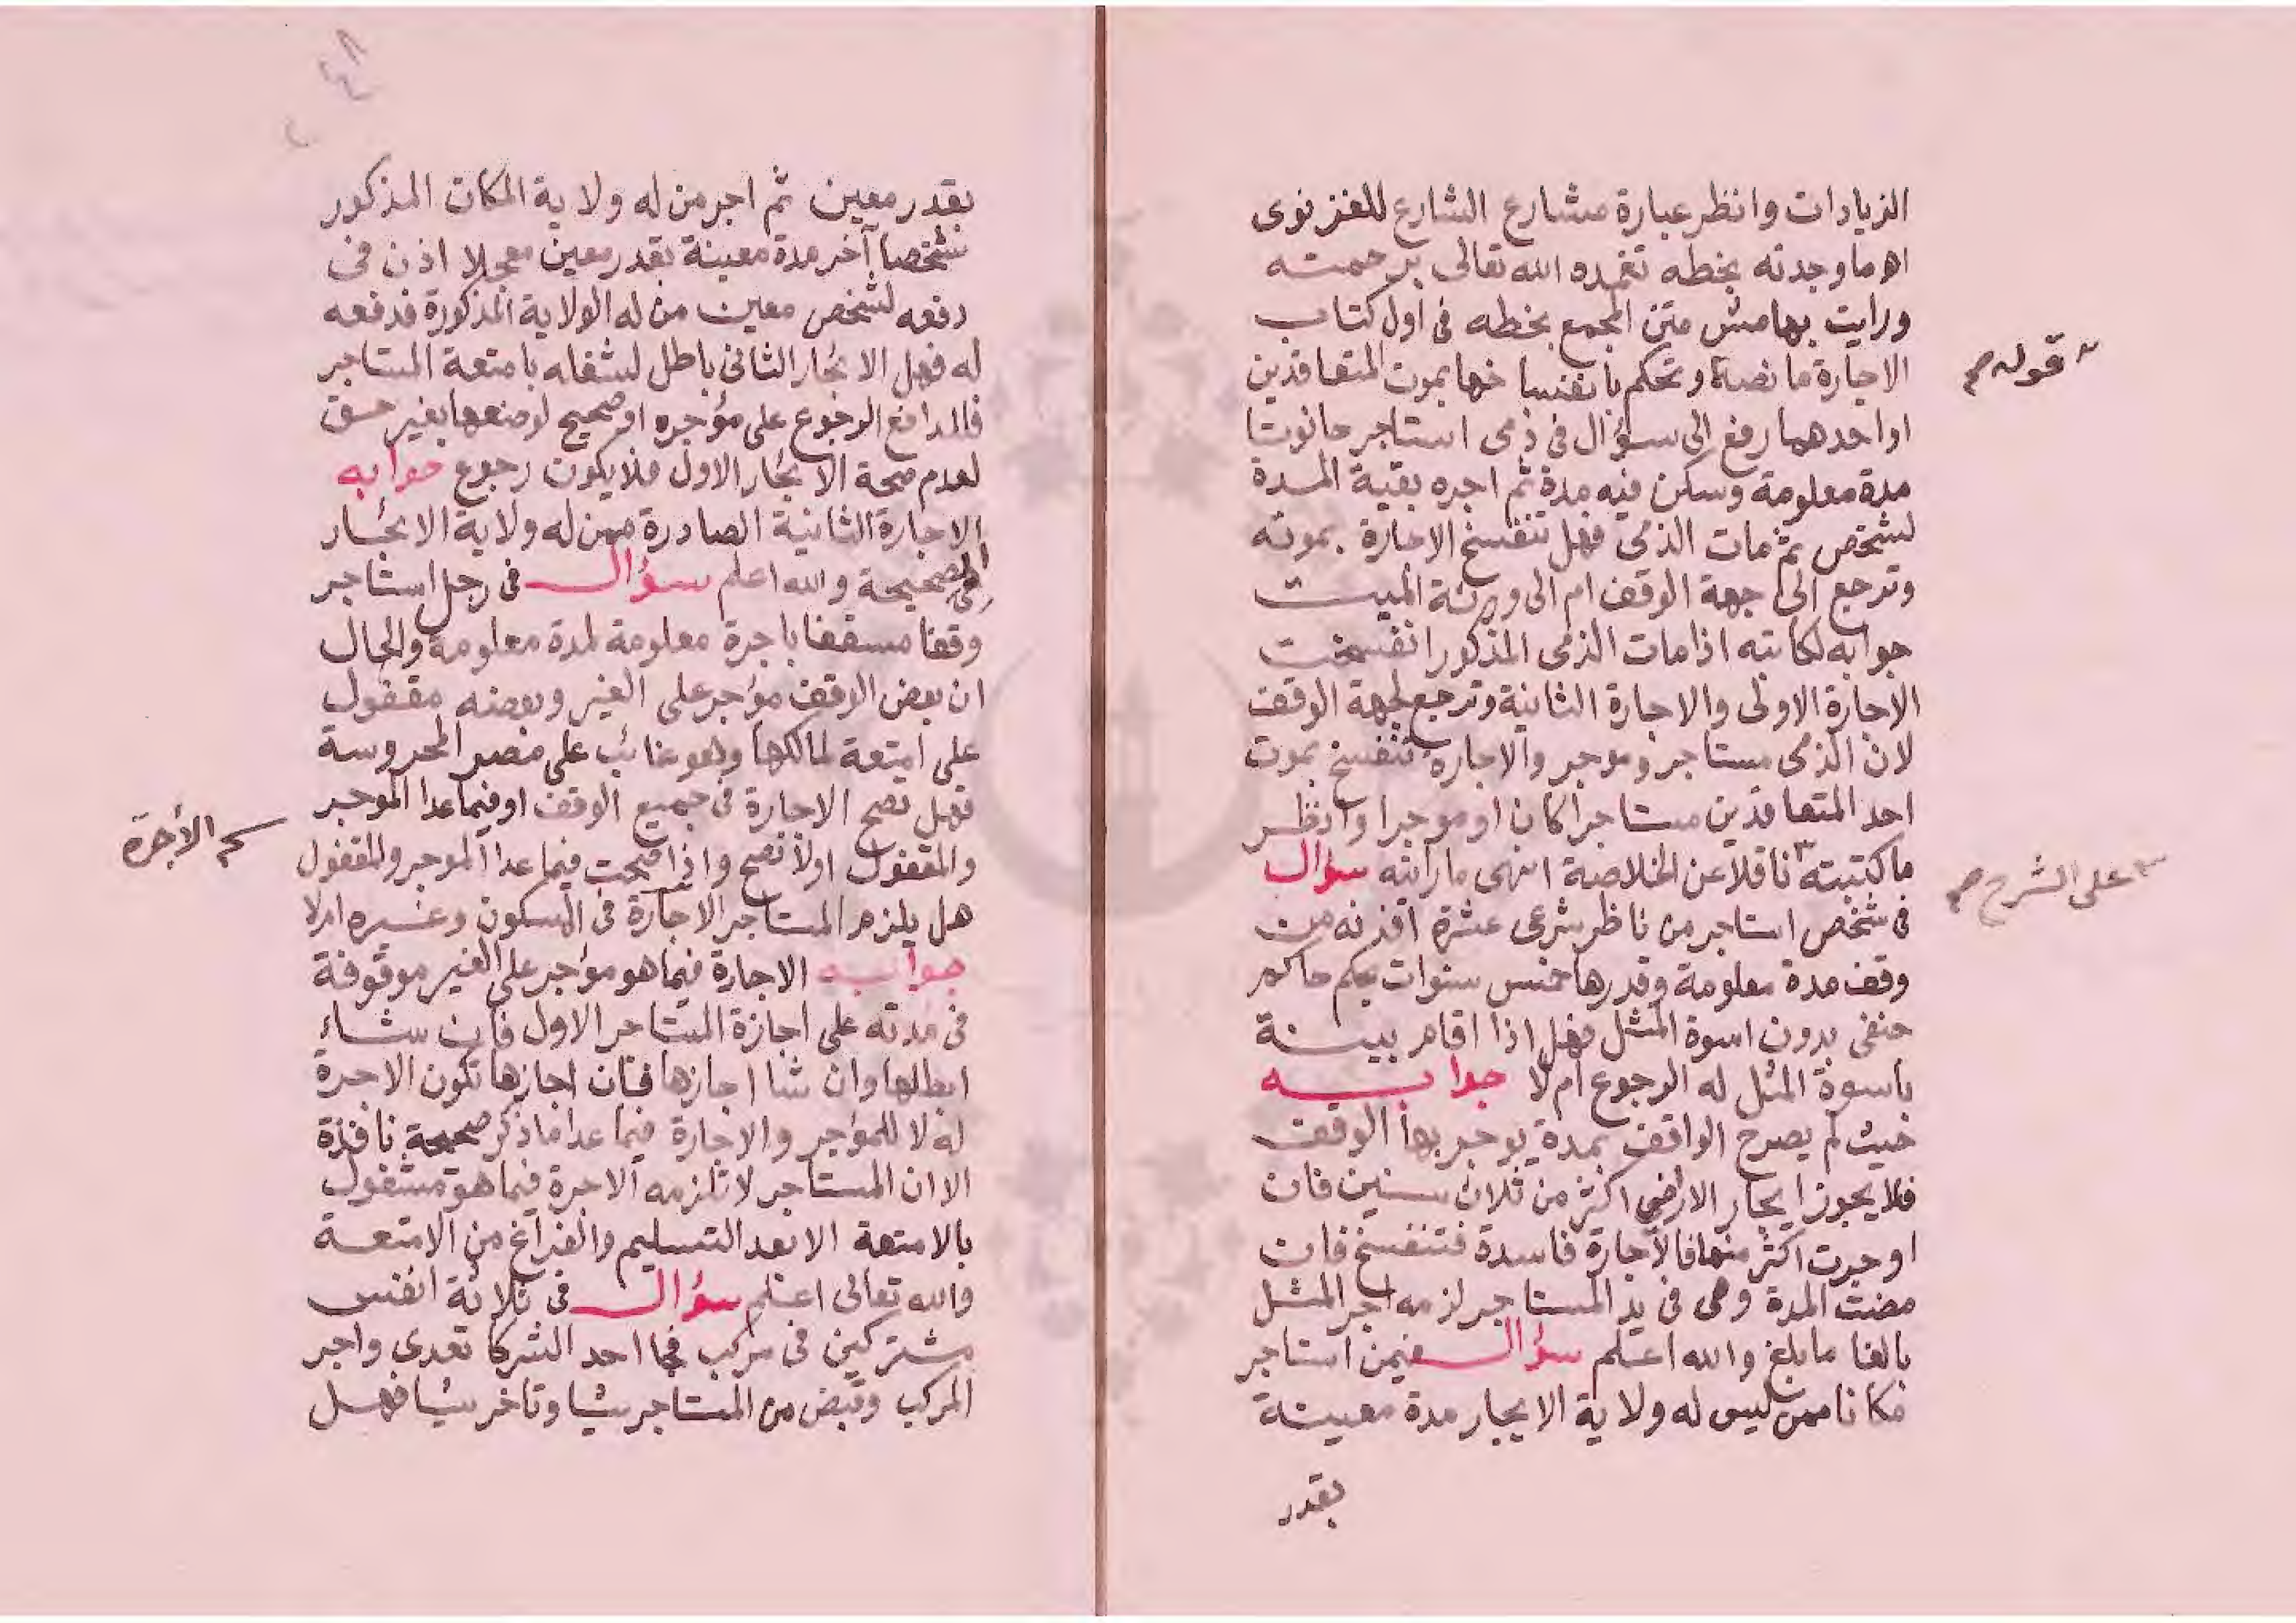 الزيادات وانظر عبارة مشارع الشارع للغزنوى
اه ما وجدته بخطه تغمده الله تعالى برحمته
ورايت بهامش متن المجمع بخطه فى اول كتاب
الاجارة ما نصه ونحكم بانفساخها بموت المتعاقدين
قوله صح
او احدهما رفع الى سؤال فى ذمى استاجر حانوتا
مدة معلومة وسكن فيه مدة ثم اجره بقية المدة
لشخص ثم مات الذمى فهل تنفسخ الاجارة بموته
وترجع الى جهة الوقف ام الى ورثة الميت
جوابه لكاتبه اذا مات الذمى المذكور انفسخت
الاجارة الاولى والاجارة الثانية وترجع لجهة الوقف
لان الذمى مستاجر وموجر والاجارة تنفسخ بموت
احد المتعاقدين مستاجرا كان او موجرا وانظر
ما كتبته ناقلا عن الخلاصة انتهى ما رايته سؤال
على الشرح صح
فى شخص استاجر من ناظر شرعى عشرة افدنه من
وقف مدة معلومة وقدرها خمس سنوات بحكم حاكم
حنفى بدون اسوة المثل فهل اذا اقام بينة
باسوة المثل له الرجوع ام لا جوابه
حيث لم يصرح الواقف بمدة يوجر بها الوقف
فلا يجوز ايجار الاراضي اكثر من ثلاث سنين فان
اوجرت اكثر منها فالاجارة فاسدة فتنفسخ فان
مضت المدة وهى فى يد المستاجر لزمه اجر المثل
بالغا ما بلغ والله اعلم سؤال فيمن استاجر
مكانا ممن ليس له ولاية الايجار مدة معينة
بقدر
٤٨
بقدر معين ثم اجر من له ولاية المكان المذكور
شخصا آخر مدة معينة بقدر معين معجلا اذن فى
دفعه لشخص معين من له الولاية المذكورة فدفعه
له فهل الايجار الثانى باطل لشغله بامتعة المستاجر
فللدافع الرجوع على مؤجره او صحيح لوضعها بغير حق
لعدم صحة الايجار الاول فلا يكون رجوع جوابه
الاجارة الثانية الصادرة ممن له ولاية الايجار
هى الصحيحة والله اعلم سؤال فى رجل استاجر
وقفا مسقفا باجرة معلومة لمدة معلومة والحال
ان بعض الوقف مؤجر على الغير وبعضه مقفول
على امتعة لمالكها وهو غائب على مصر المحروسة
فهل تصح الاجارة فى جميع الوقف او فيما عدا الموجر
والمقفول اولا تصح واذا صحت فيما عدا الموجر والمقفول
هل يلزم المستاجر الاجارة فى المسكون وغيره ام لا
الأجرة
جوابه الاجارة فيما هو مؤجر على الغير موقوفة
فى مدته على اجازة المستاجر الاول فان شاء
ابطلها وان شا اجازها فان اجازها تكون الاجرة
له لا للمؤجر والاجارة فيما عدا ما ذكر صحيحة نافذة
الا ان المستاجر لا تلزمه الاجرة فيما هو مشغول
بالامتعة الا بعد التسليم والفراغ من الامتعة
والله تعالى اعلم سؤال فى ثلاثة انفس
مشتركين فى مركب فجا احد الشركا تعدى واجر
المركب وقبض من المستاجر شيا وتاخر شيا فهل